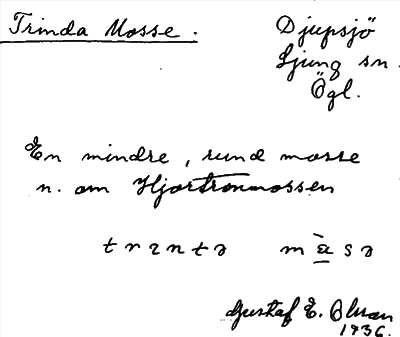 Trinda Mosse.
Djupsjö
Ljung sn.
Ögl.
En mindre, rund mosse
n. om Hjortronmossen
trṇntə màsə
Gustaf E. Olsson
1936.